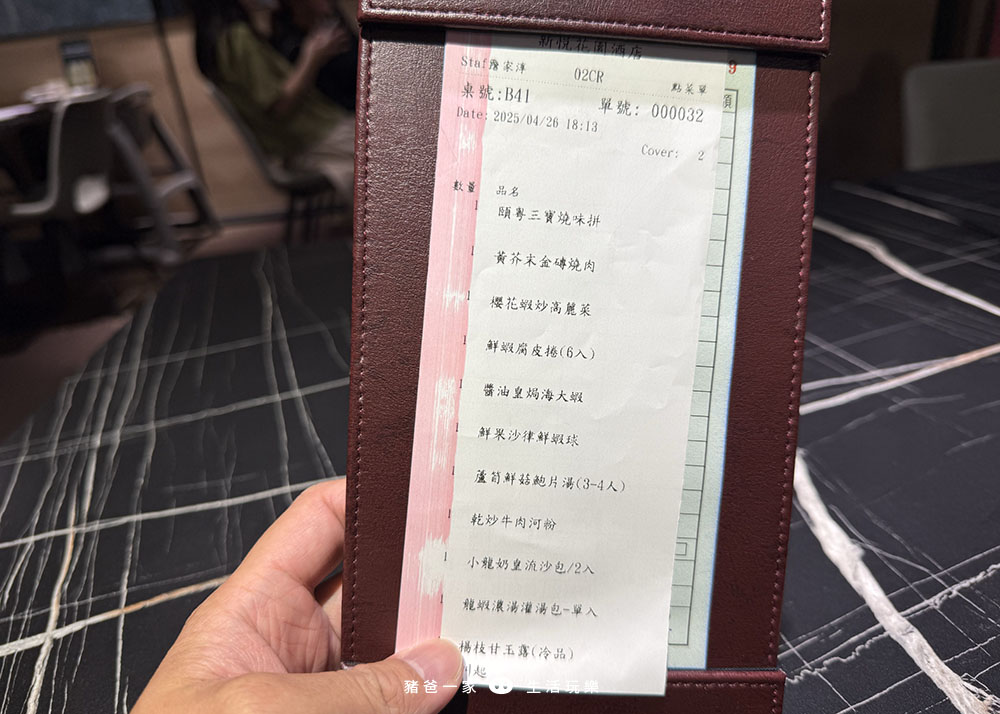 新悅花園酒店
9
Staf詹家淳
02CR
點菜單
桌號:B41
單號: 000032
Date: 2025/04/26 18:13
Cover: 2
數量 品名
1 頤粵三寶燒味拼
1 黃芥末金磚燒肉
1 櫻花蝦炒高麗菜
1 鮮蝦腐皮捲(6入)
1 醬油皇焗海大蝦
1 鮮果沙律鮮蝦球
1 蘆筍鮮菇鮑片湯(3-4人)
1 乾炒牛肉河粉
1 小龍奶皇流沙包/2入
1 龍蝦濃湯灌湯包-單入
楊枝甘玉露(冷品)
叫起
豬爸一家 生活玩樂